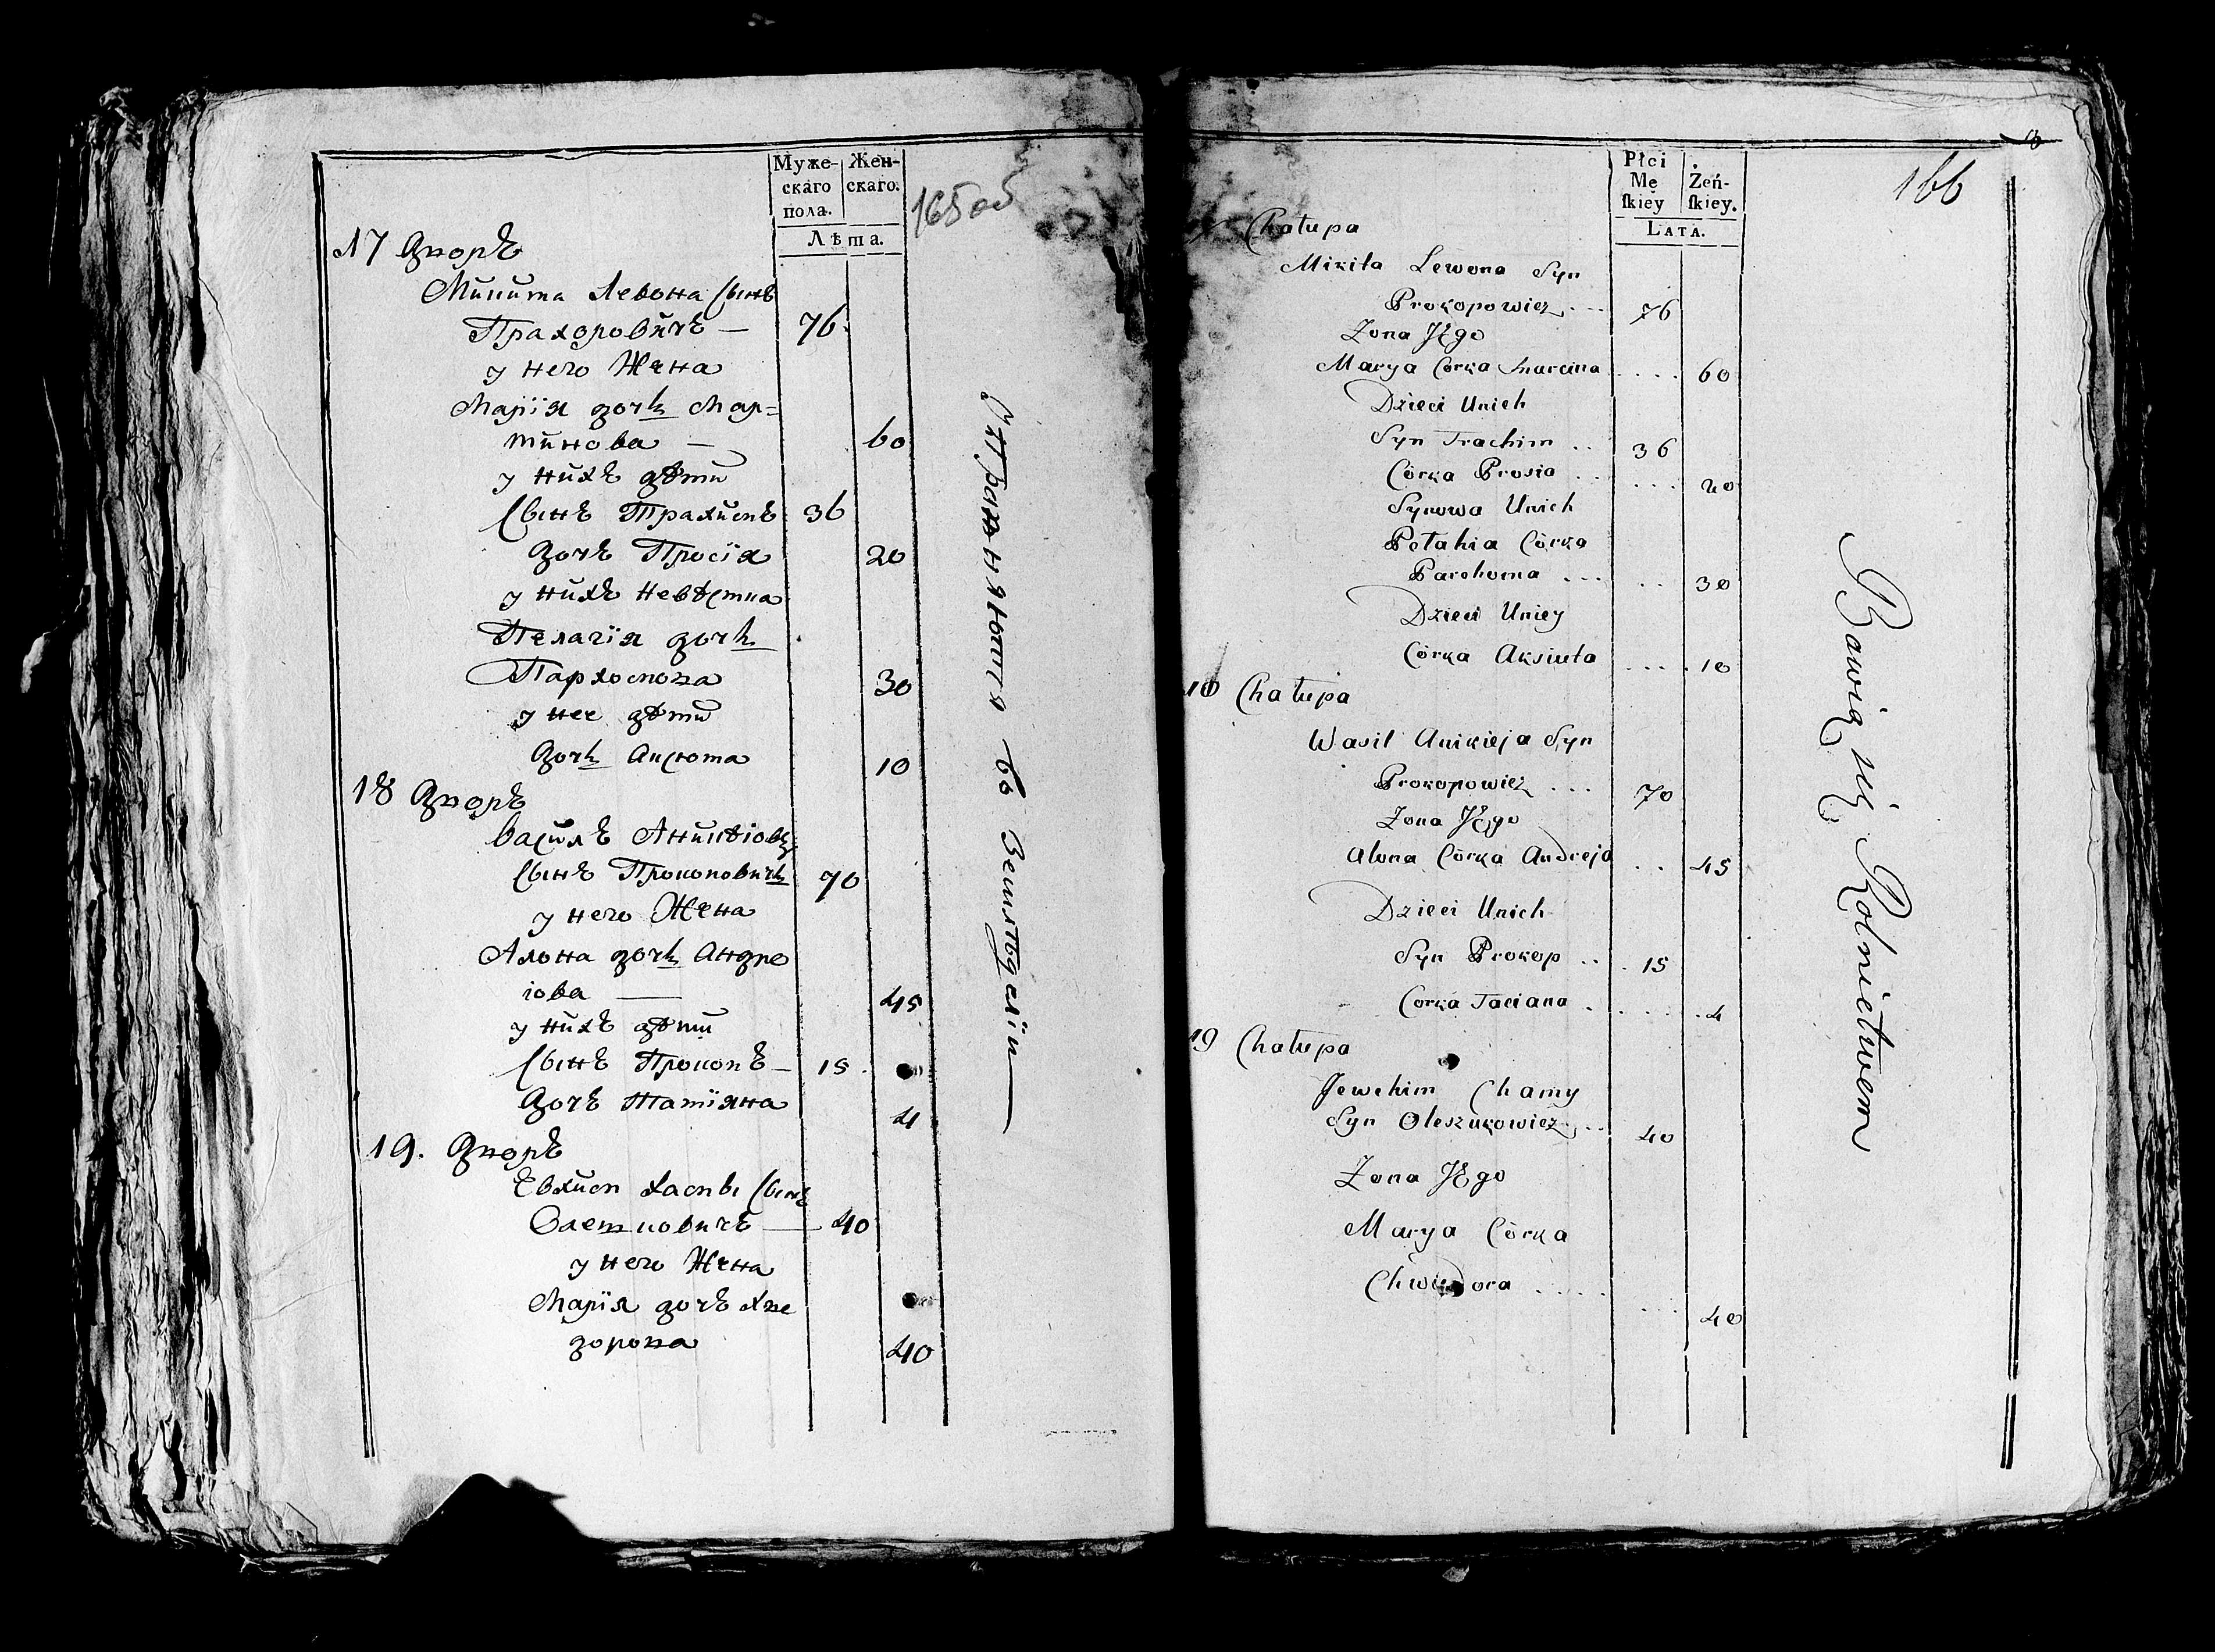 Муже-
скаго
пола.
Жен-
скаго.
Лѣта.
165об
17 Дворъ
Микита Левона Сынъ
Прахоровичъ — 76
у него Жена
Марїя дочь Мар=
тинова — 60
у нихъ дѣти
Сынъ Трахимъ 36
Дочъ Просїя 20
у нихъ невѣстка
Пелагїя дочь
Пархомова 30
у нее дѣти
Дочь Аксюта 10
18 Дворъ
Василъ Аникѣіовъ
Сынъ Прокоповичь 70
у него Жена
Алона дочь Андре
іова — 45
у нихъ дѣти
Сынъ Прокопъ — 15
Дочъ Татїяна 4
19. Дворъ
Евхим Хамы Сынъ
Олешковичъ — 40
у него Жена
Марїя дочъ Хве
дорова 40
въ Земледелїи —
Płci
Mę
ſkiey
Żeń-
ſkiey.
LATA.
166
Chałupa
Mikita Lewona Syn
Prokopowicz ... 76
Żona Jego
Marya Córka Marcina .... 60
Dzieci Unich
Syn Trachim .. 36
Córka Prosia .. ... 20
Synowa Unich
Połahia Córka
Parchoma ... .. 30
Dzieci Uniey
Córka Aksiuta .... 10
18 Chałupa
Wasil Anikieja Syn
Prokopowicz ... 70
Żona Jego
Alona Córka Andreja .. 45
Dzieci Unich
Syn Prokop ... 15
Corka Taciana ..... 4
19 Chałupa
Jewchim Chamy
Syn Oleszukowicz ... 40
Żona Jego
Marya Córka
Chwiedora .... ... 40
Bawią się Rolnictwem